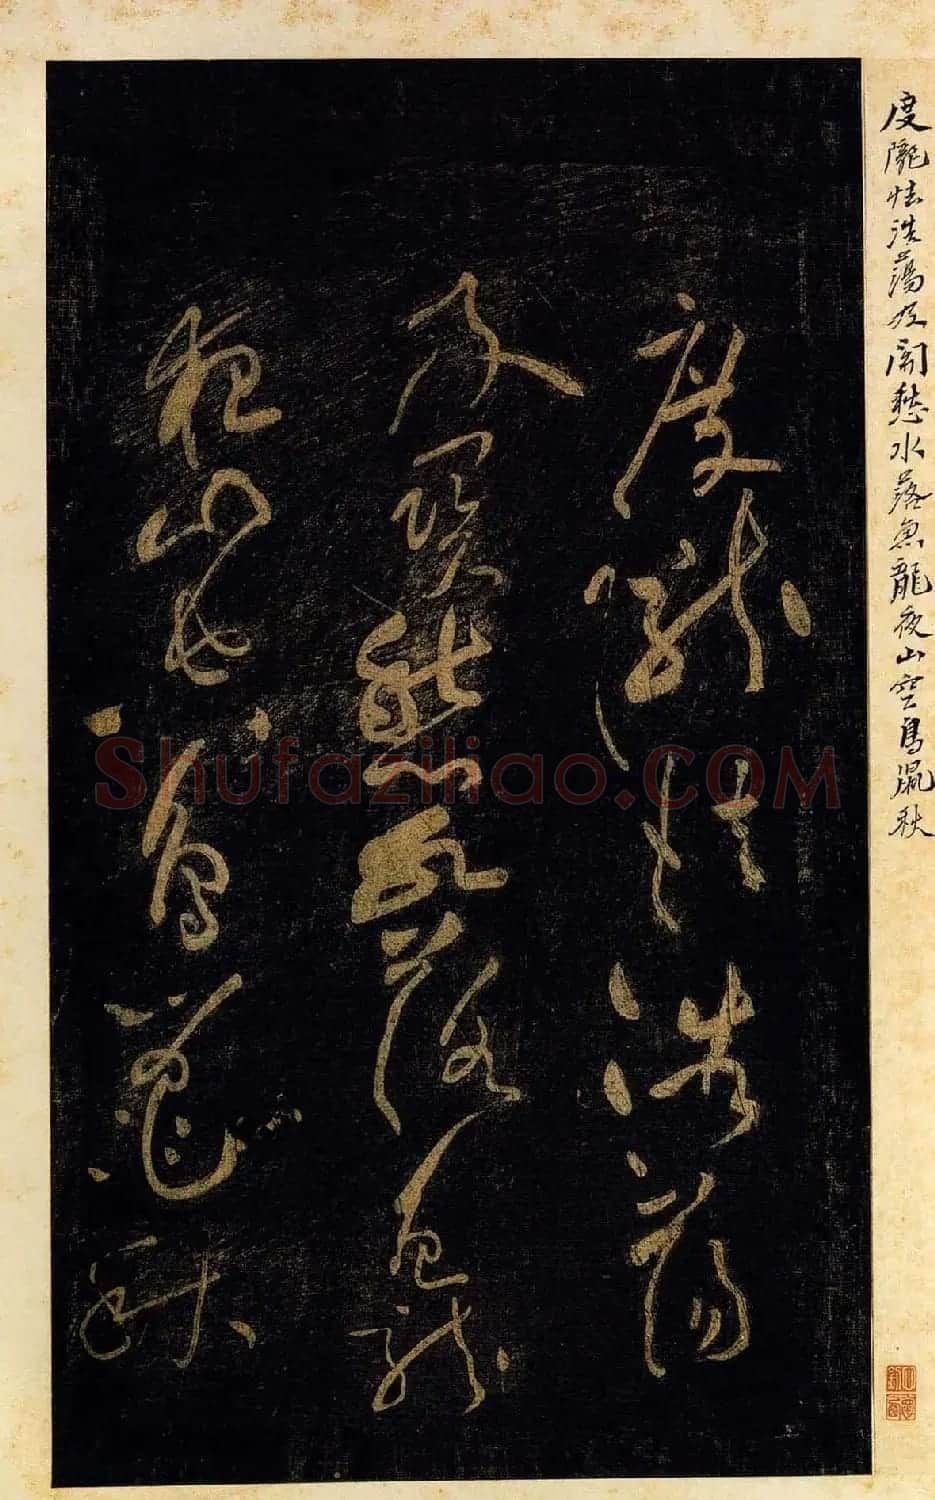 度隴怯浩蕩及關愁水落魚龍夜山空鳥鼠秋
度隴怯浩蕩
及關愁水落魚龍
夜山空鳥鼠秋
Shufaziliao.COM